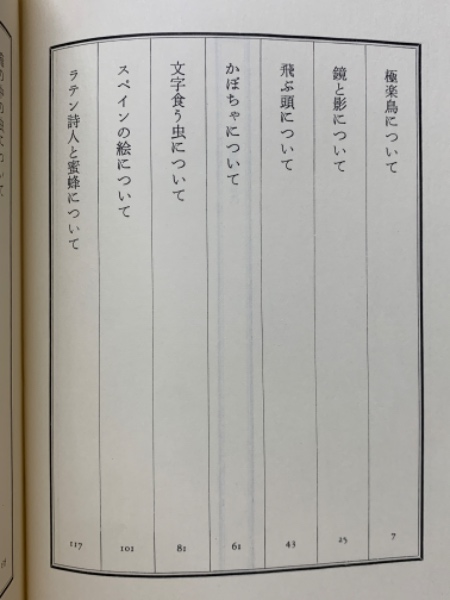 極楽鳥について 7
鏡と影について 25
飛ぶ頭について 43
かぼちゃについて 61
文字食う虫について 81
スペインの絵について 101
ラテン詩人と蜜蜂について 117